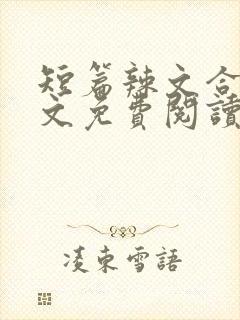 短篇辣文合
文免費閱讀
凌東雪語